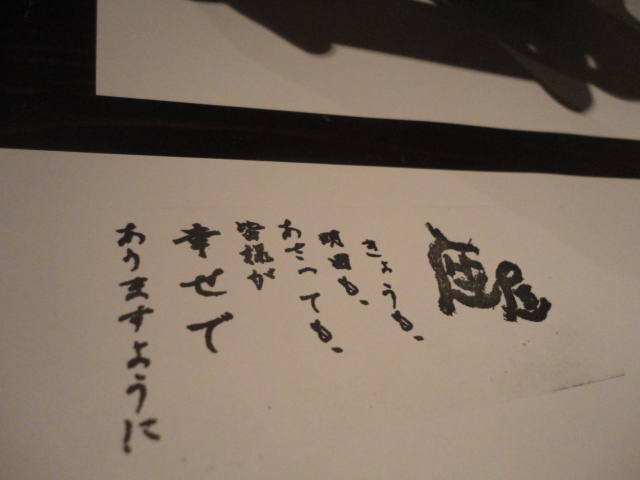 きょうも、
明日も、
あさっても、
皆様が
幸せで
ありますように